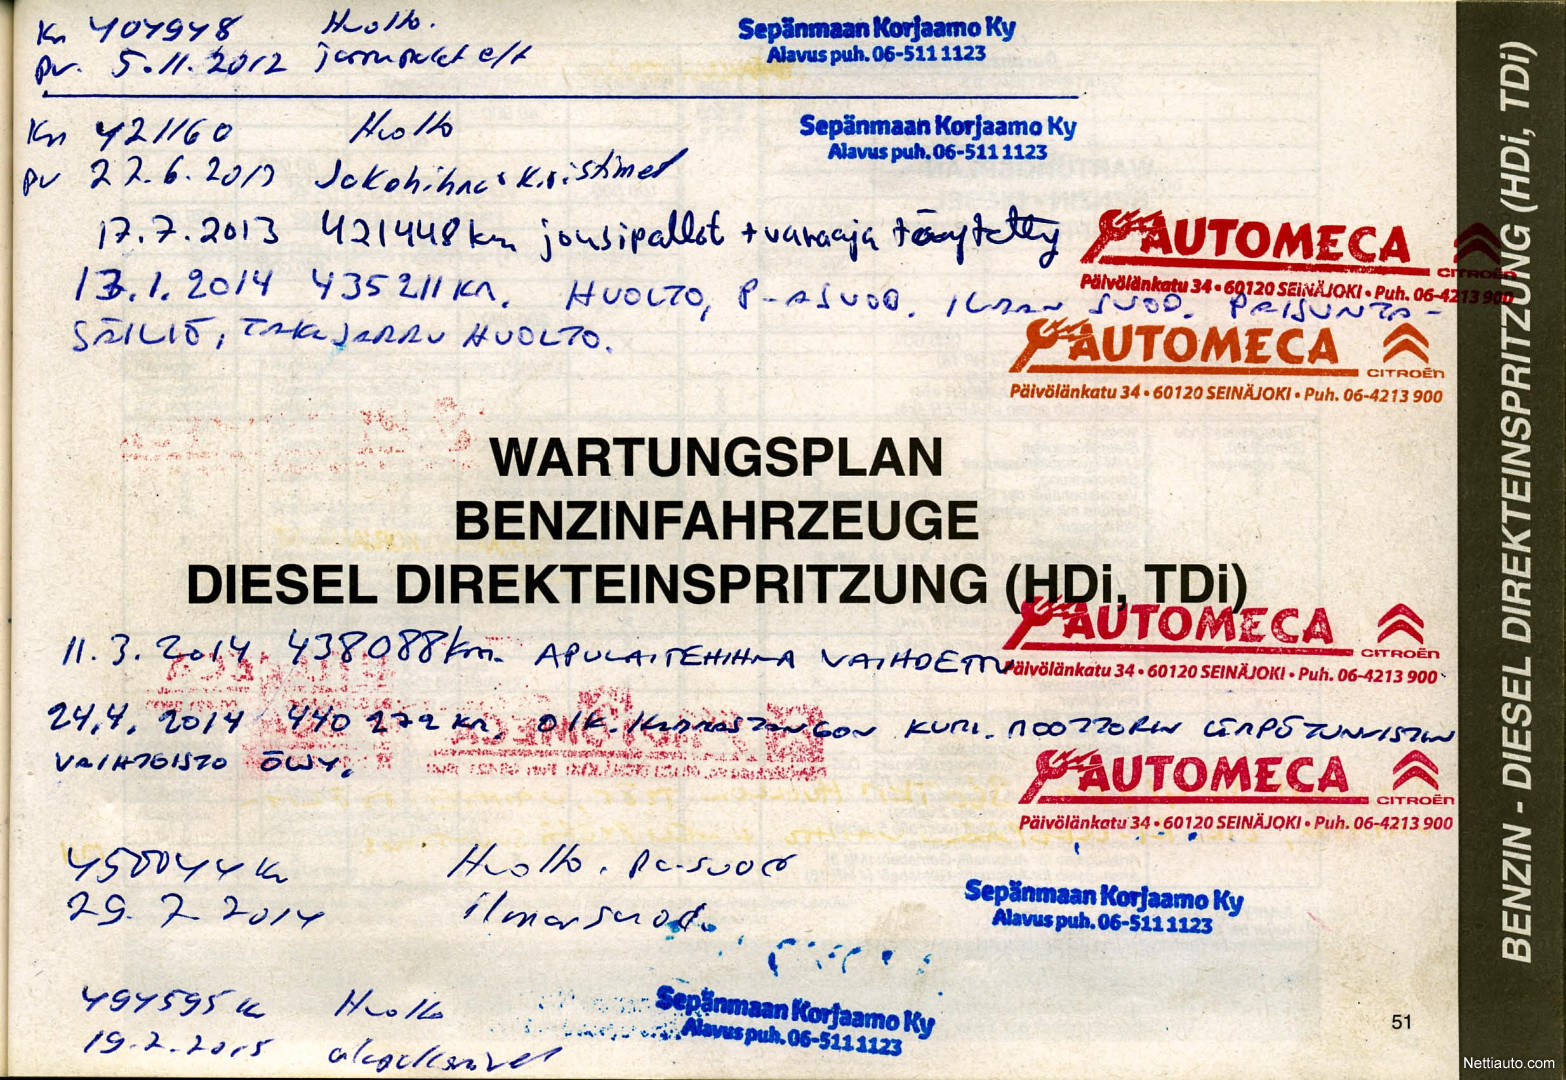 Km 404948 Huolto. Sepänmaan Korjaamo Ky
pv. 5.11.2012 jarrupalat e/t Alavus puh. 06-511 1123
Km 421160 Huolto Sepänmaan Korjaamo Ky
pv 22.6.2013 Jakohihna + kiristimet Alavus puh. 06-511 1123
17.7.2013 421448km jousipallot + varaaja täytetty AUTOMECA
CITROËN
Päivölänkatu 34 • 60120 SEINÄJOKI • Puh. 06-4213 900
13.1.2014 435211 km. HUOLTO, P-ASUOD. ILMAN SUOD. PAISUNTA-
SÄILIÖ, TAKAJARRU HUOLTO.
AUTOMECA
CITROËN
Päivölänkatu 34 • 60120 SEINÄJOKI • Puh. 06-4213 900
WARTUNGSPLAN
BENZINFAHRZEUGE
DIESEL DIREKTEINSPRITZUNG (HDi, TDi)
AUTOMECA
CITROËN
11.3.2014 438088km. APULAITEHIHNA VAIHDETTU Päivölänkatu 34 • 60120 SEINÄJOKI • Puh. 06-4213 900
24.4. 2014 440 272 km. O/K. KANNATANGON KUMI. MOOTTORIN LÄMPÖTUNNISTIN
VAIHTEISTO ÖLJY.
AUTOMECA
CITROËN
Päivölänkatu 34 • 60120 SEINÄJOKI • Puh. 06-4213 900
450044 km Huolto. pa-suod
29.7.2014 ilmansuod. Sepänmaan Korjaamo Ky
Alavus puh. 06-511 1123
494595 km Huolto Sepänmaan Korjaamo Ky
19.2.2015 Alavus puh. 06-511 1123
51
BENZIN - DIESEL DIREKTEINSPRITZUNG (HDi, TDi)
Nettiauto.com